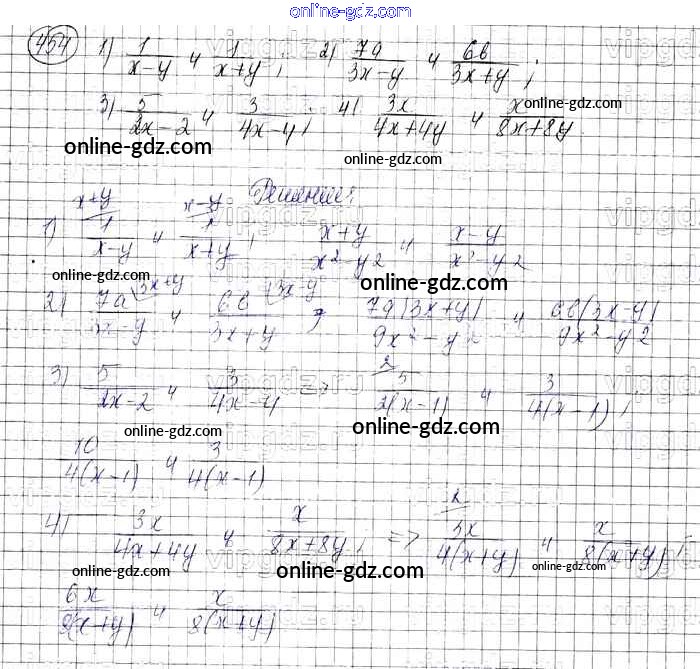 online-gdz.com
454 1) 1/(x-y) и 1/(x+y); 2) 7a/(3x-y) и 6b/(3x+y);
3) 5/(2x-2) и 3/(4x-4); 4) 3x/(4x+4y) и x/(8x+8y)
online-gdz.com
online-gdz.com
online-gdz.com
Решение:
x+y x-y
1) 1/(x-y) и 1/(x+y); (x+y)/(x²-y²) и (x-y)/(x²-y²)
online-gdz.com
online-gdz.com
2) 7a/(3x-y) (3x+y и 6b/(3x+y) (3x-y; 7a(3x+y)/(9x²-y²) и 6b(3x-y)/(9x²-y²)
2
3) 5/(2x-2) и 3/(4x-4) => 5/(2(x-1)) и 3/(4(x-1));
online-gdz.com
online-gdz.com
10/(4(x-1)) и 3/(4(x-1))
2
4) 3x/(4x+4y) и x/(8x+8y); => 3x/(4(x+y)) и x/(8(x+y));
online-gdz.com
online-gdz.com
online-gdz.com
6x/(8(x+y)) и x/(8(x+y))